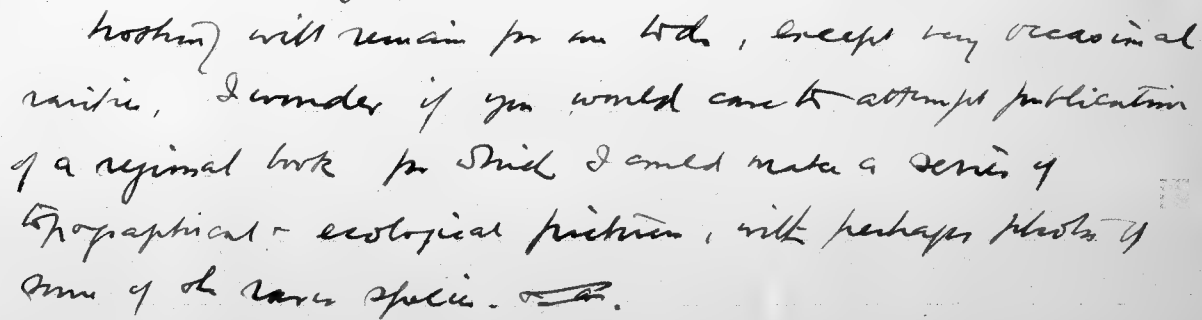 nothing will remain for me to do, except very occasional
rarities, I wonder if you would care to attempt publication
of a regional book for which I could make a series of
topographical & ecological pictures, with perhaps photos of
some of the rarer species.